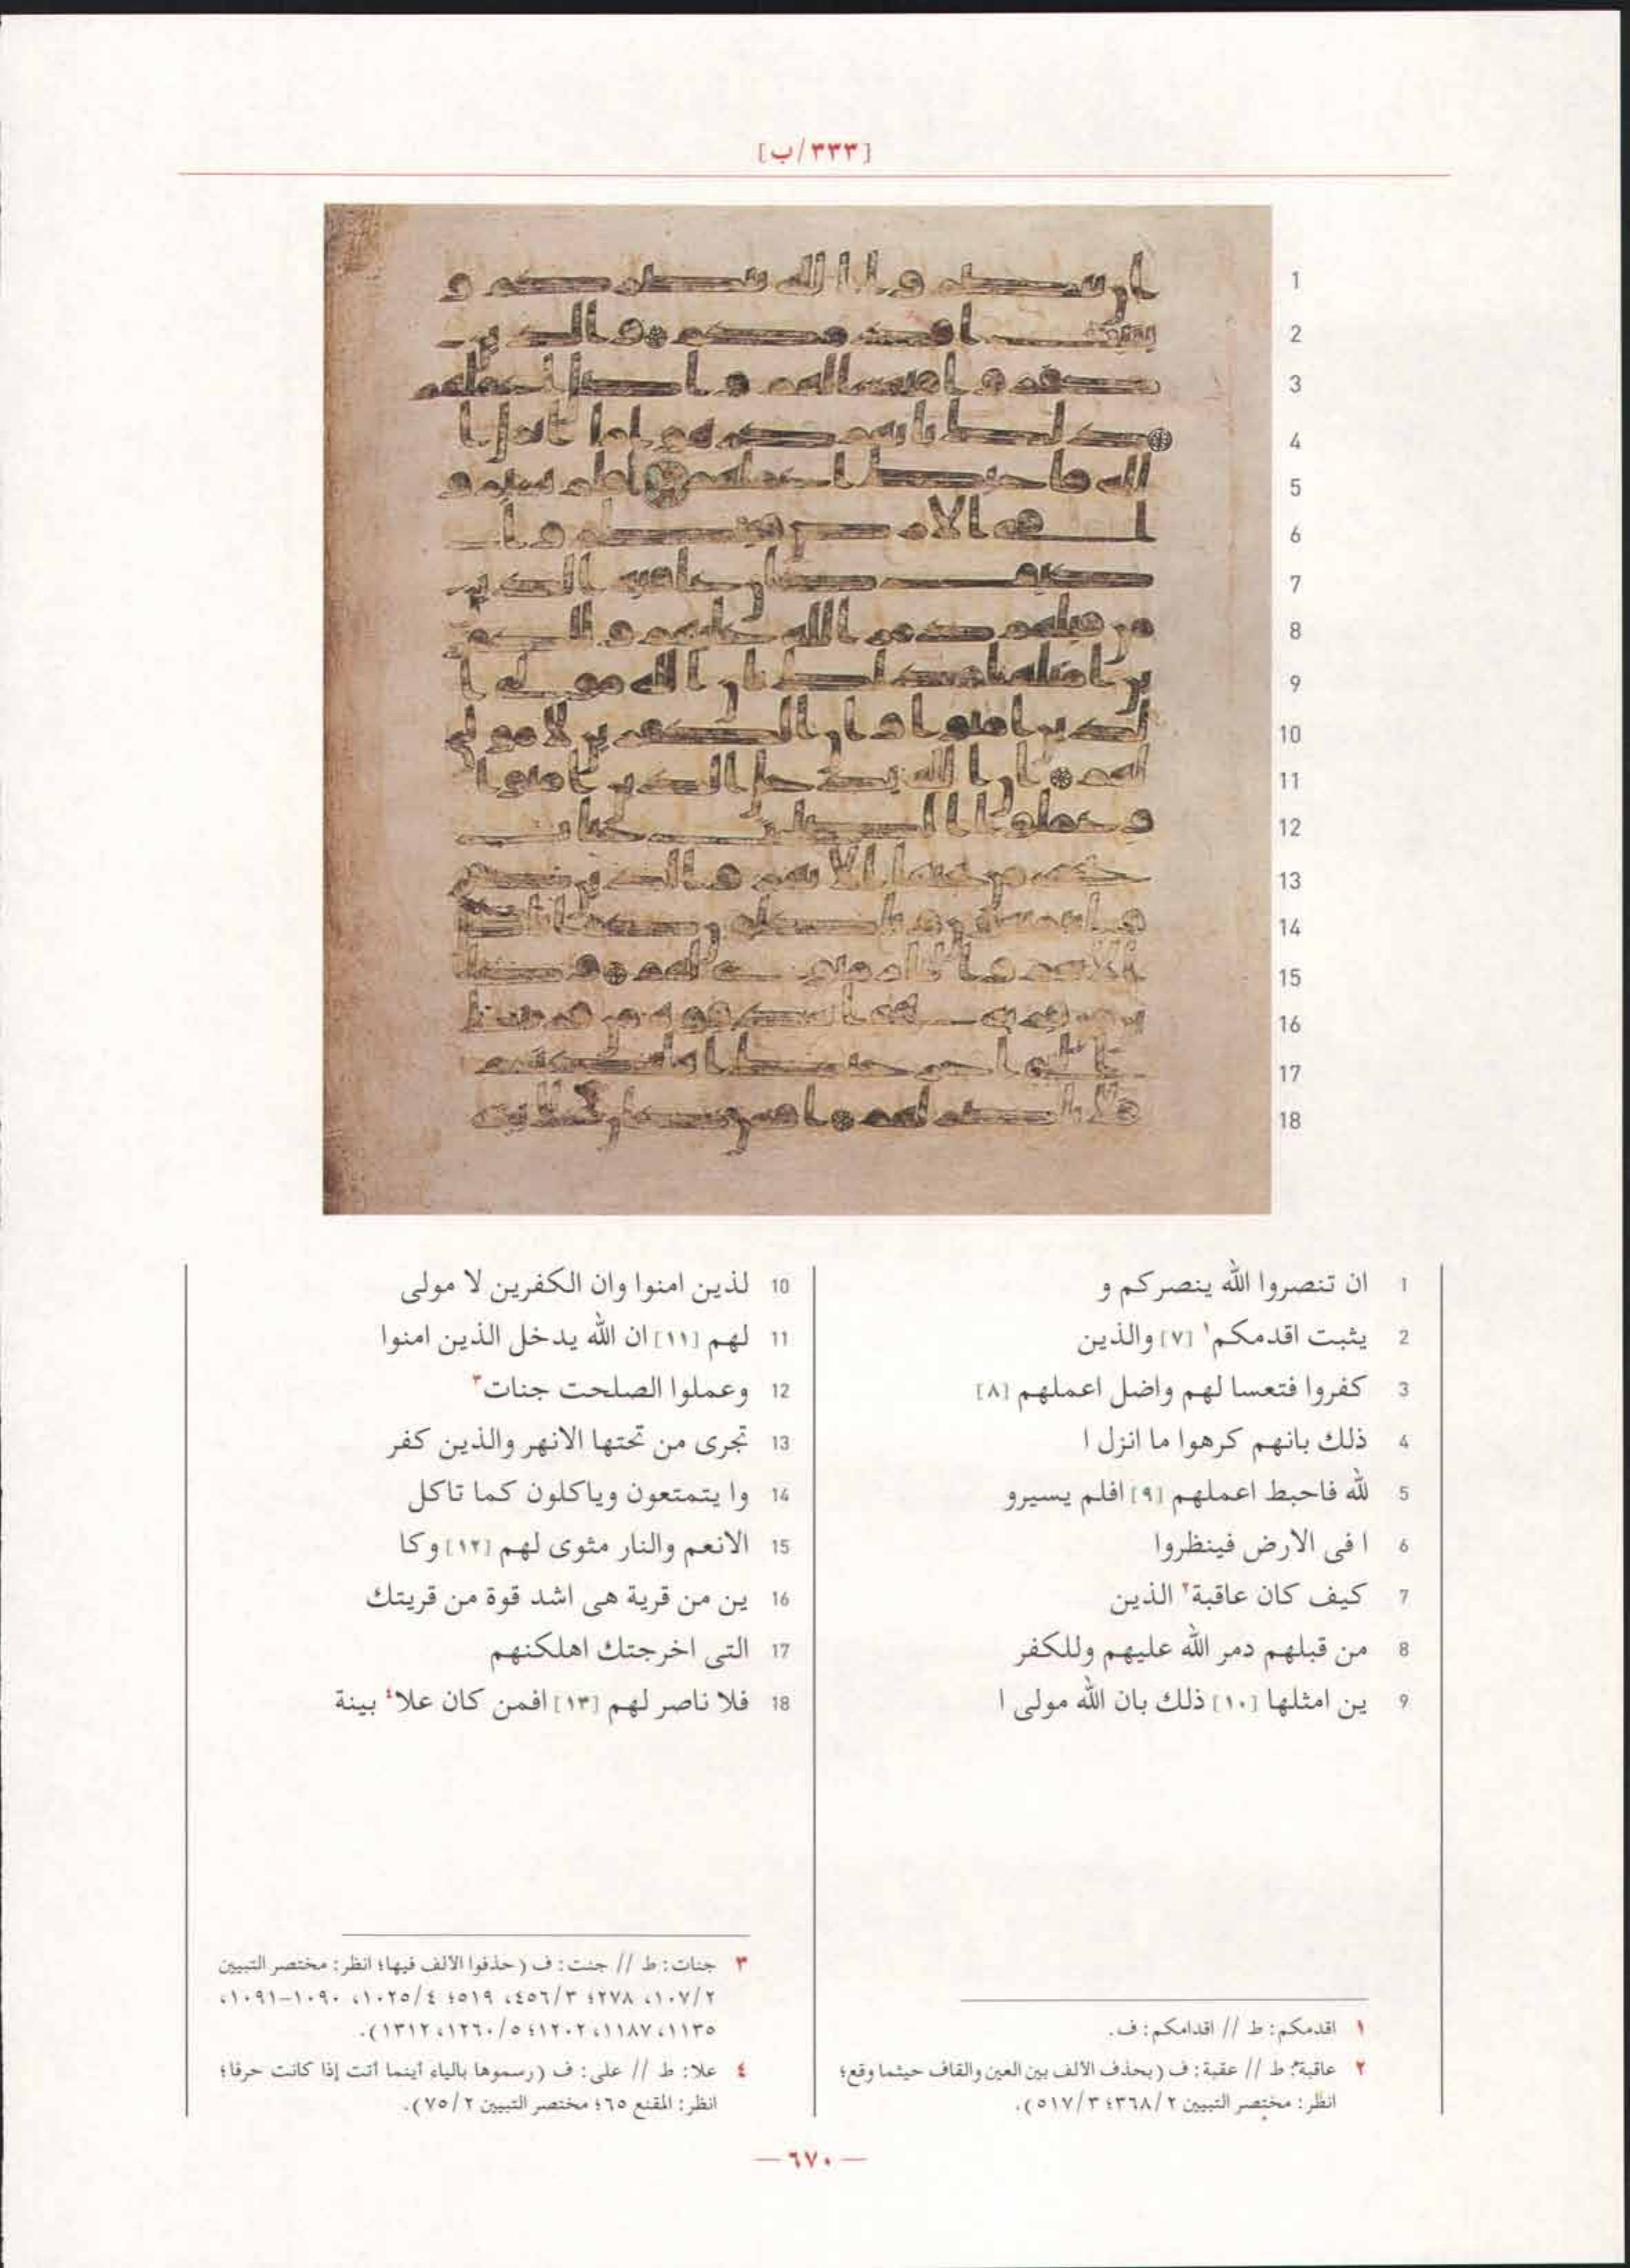 [٣٣٣/ب]
1 ان تنصروا الله ينصركم و
2 يثبت اقدمكم١ [٧] والذين
3 كفروا فتعسا لهم واضل اعملهم [٨]
4 ذلك بانهم كرهوا ما انزل ا
5 لله فاحبط اعملهم [٩] افلم يسيرو
6 ا فى الارض فينظروا
7 كيف كان عاقبة٢ الذين
8 من قبلهم دمر الله عليهم وللكفر
9 ين امثلها [١٠] ذلك بان الله مولى ا
10 لذين امنوا وان الكفرين لا مولى
11 لهم [١١] ان الله يدخل الذين امنوا
12 وعملوا الصلحت جنات٣
13 تجرى من تحتها الانهر والذين كفر
14 وا يتمتعون وياكلون كما تاكل
15 الانعم والنار مثوى لهم [١٢] وكا
16 ين من قرية هى اشد قوة من قريتك
17 التى اخرجتك اهلكنهم
18 فلا ناصر لهم [١٣] افمن كان علا٤ بينة
١ اقدمكم: ط // اقدامكم: ف.
٢ عاقبة: ط // عقبة: ف (بحذف الألف بين العين والقاف حيثما وقع؛
انظر: مختصر التبيين ٣٦٨/٢؛ ٥١٧/٣).
٣ جنات: ط // جنت: ف (حذفوا الألف فيها؛ انظر: مختصر التبيين
١٠٧/٢، ٢٧٨؛ ٤٥٦/٣، ٥١٩؛ ١٠٢٥/٤، ١٠٩٠-١٠٩١،
١١٣٥، ١١٨٧، ١٢٠٢؛ ١٢٦٠/٥، ١٣١٢).
٤ علا: ط // على: ف (رسموها بالياء أينما أتت إذا كانت حرفا؛
انظر: المقنع ٦٥؛ مختصر التبيين ٧٥/٢).
— ٦٧٠ —